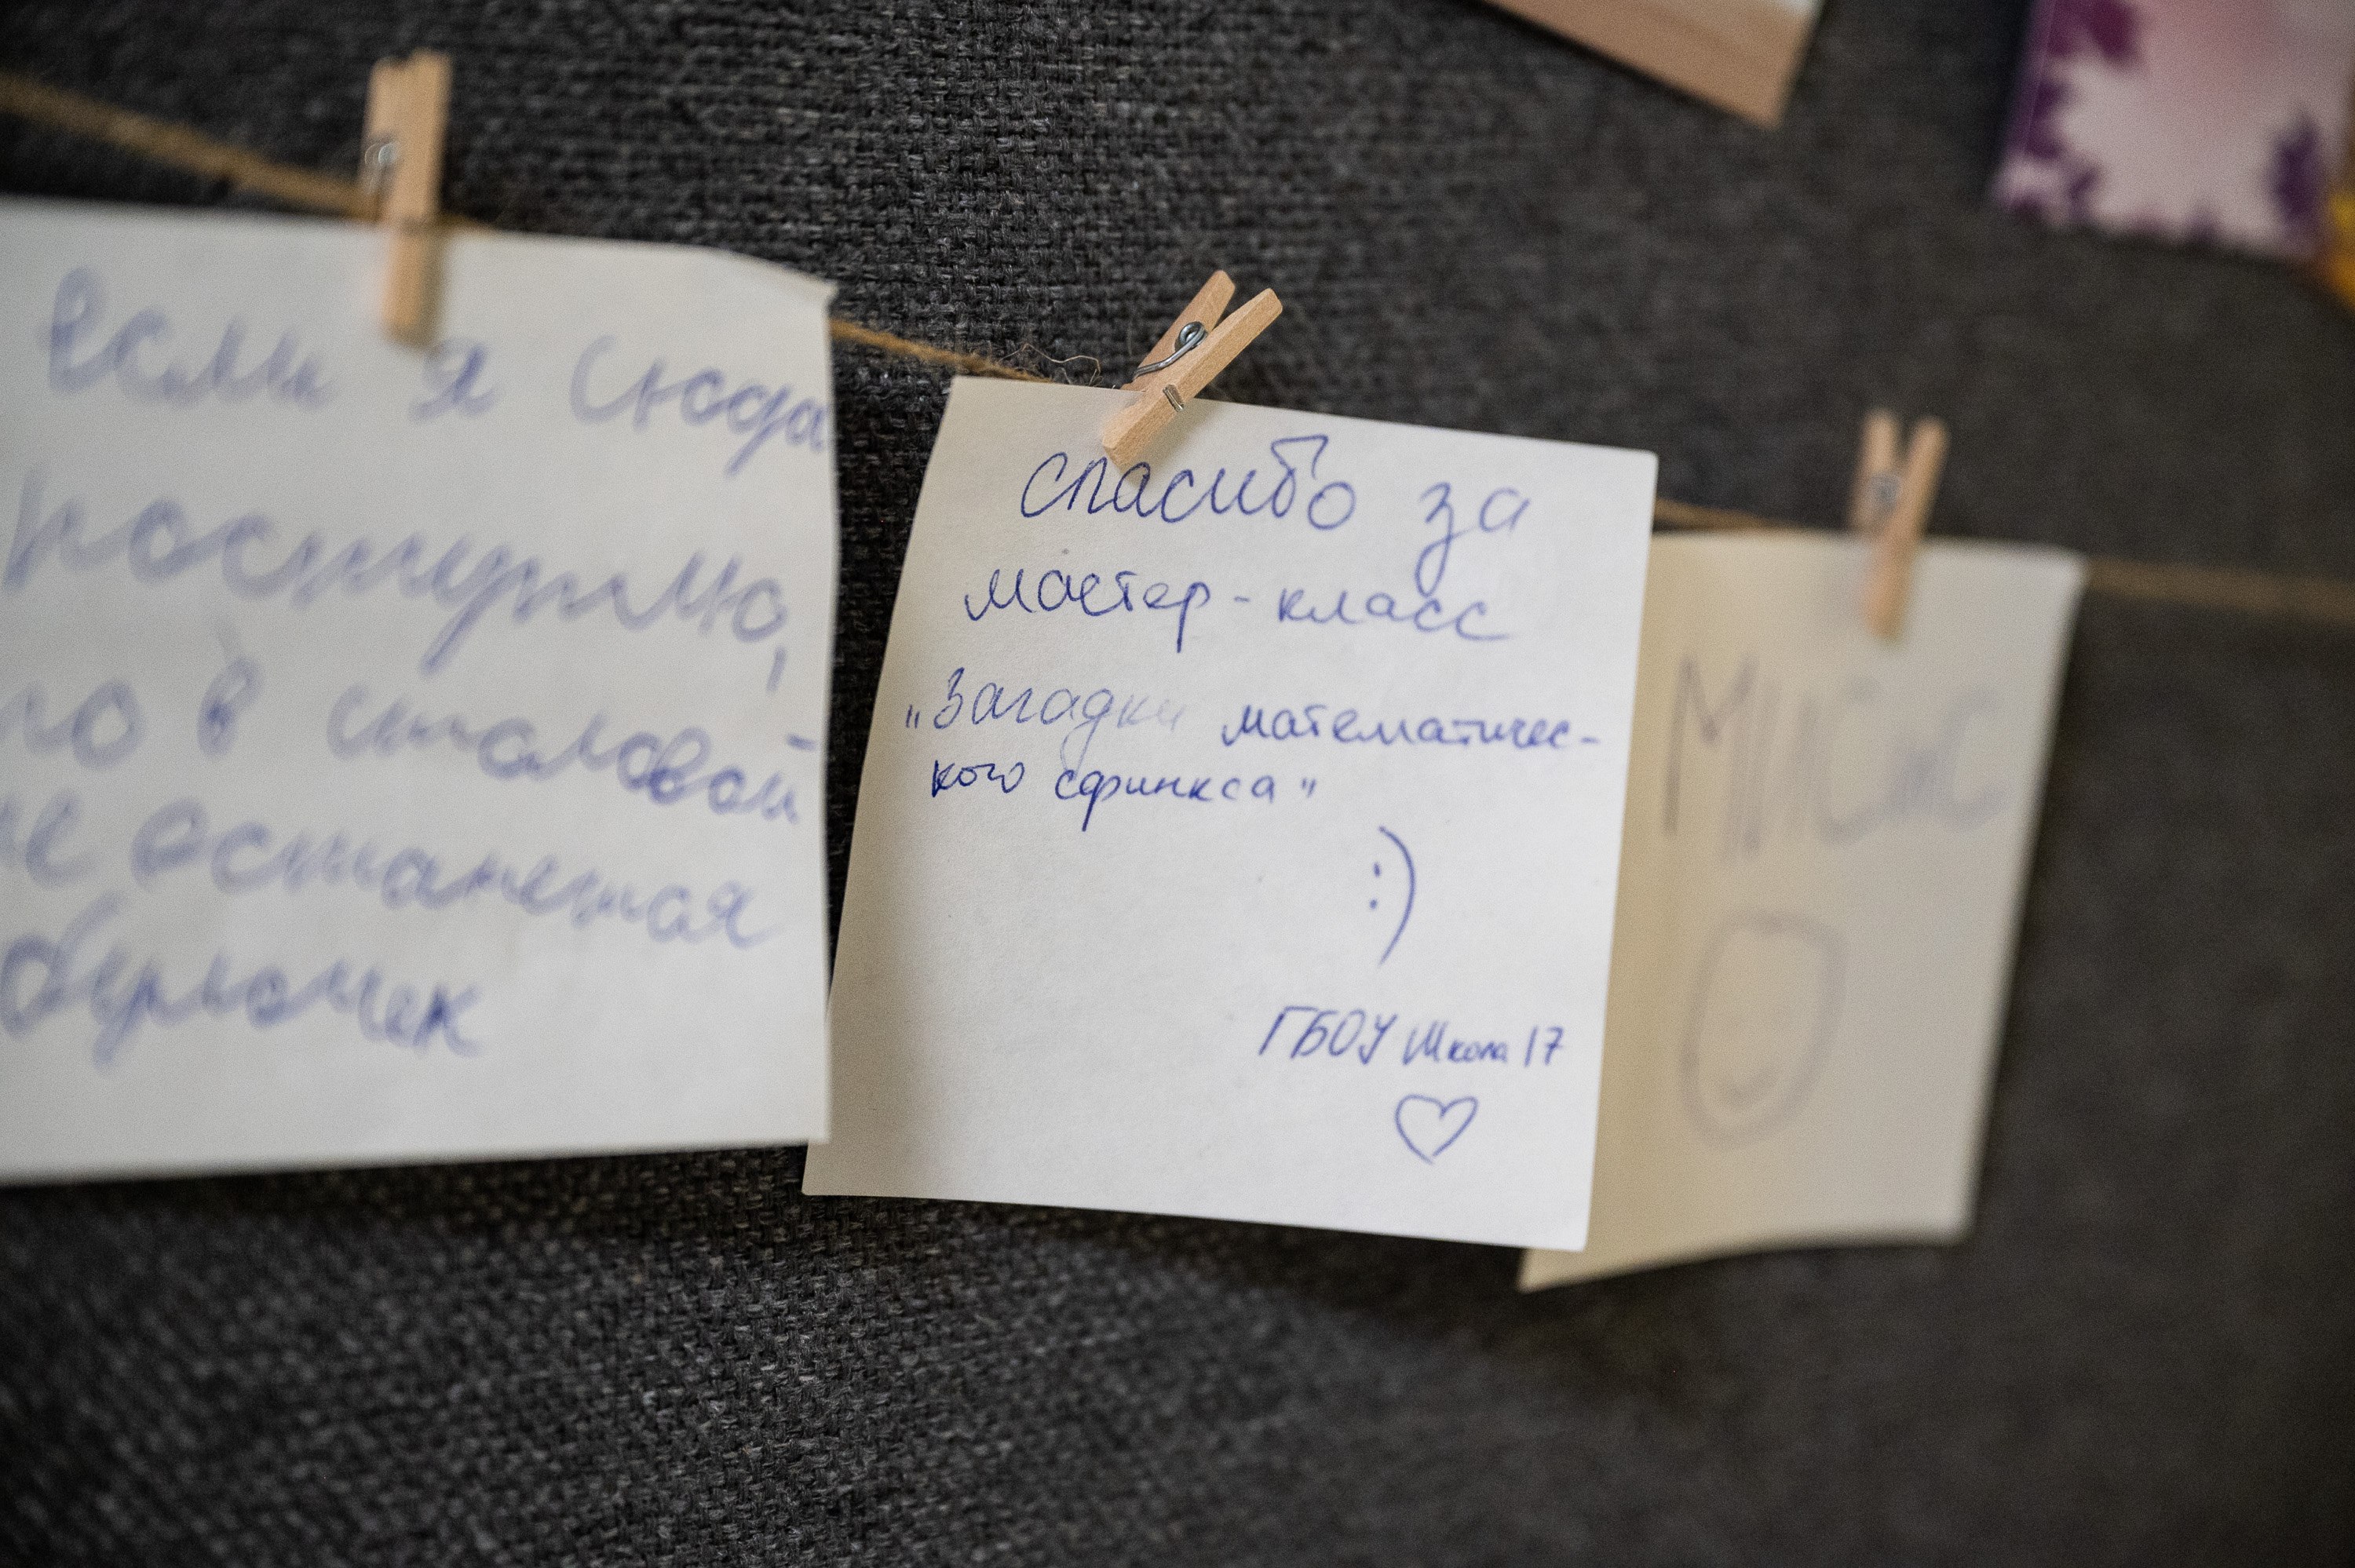 если я сюда
поступлю,
то в столовой
не останется
булочек
спасибо за
мастер-класс
„Загадки математичес-
кого сфинкса"
:)
ГБОУ Школа 17
♡